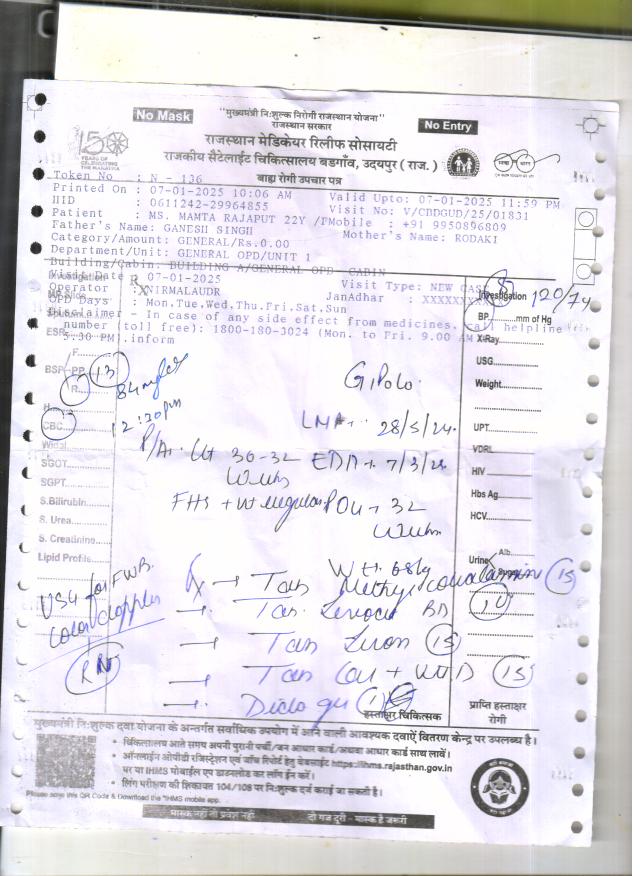 No Mask
"मुख्यमंत्री निःशुल्क निरोगी राजस्थान योजना"
राजस्थान सरकार
No Entry
150
YEARS OF
CELEBRATING
THE MAHATMA
राजस्थान मेडिकेयर रिलीफ सोसायटी
राजकीय सैटेलाईट चिकित्सालय बडगाँव, उदयपुर ( राज. )
बाह्य रोगी उपचार पत्र
Token No : N - 136
Printed On : 07-01-2025 10:06 AM Valid Upto: 07-01-2025 11:59 PM
HID : 0611242-29964855 Visit No: V/CBDGUD/25/01831
Patient : MS. MAMTA RAJAPUT 22Y /F Mobile : +91 9950896809
Father's Name: GANESH SINGH Mother's Name: RODAKI
Category/Amount: GENERAL/Rs.0.00
Department/Unit: GENERAL OPD/UNIT 1
Building/Cabin: BUILDING A/GENERAL OPD CABIN
Visit Date : 07-01-2025 Visit Type: NEW CASE
Operator : NIRMALAUDR JanAadhar : XXXXXXX
OPD Days : Mon.Tue.Wed.Thu.Fri.Sat.Sun
Disclaimer - In case of any side effect from medicines, call helpline
number (toll free): 1800-180-3024 (Mon. to Fri. 9.00 AM
5:30 PM).inform
Investigation
BP 120/74 mm of Hg
X-Ray
USG
Weight
UPT
VDRL
HIV
Hbs Ag
HCV
Urine Alb.
ESR
F
BSP-PP 13
R 84 mg/dl
H
CBC 12:20pm
Widal
SGOT
SGPT
S.Bilirubin
S. Urea
S. Creatinine
Lipid Profile
G1P0L0
LMP 28/5/24
P/A Ut 30-32 Wks EDD 7/3/25
FHS + nt regular POG 32 Wks
Wt. 68kg
USG for FWB
color doppler
Rx → Tab Methylcobalamin 15
→ Tab BD 10
→ Tab Iron 15
→ Tab Cal + Vit D 15
→ Diclo gel 1
हस्ताक्षर चिकित्सक
प्राप्ति हस्ताक्षर
रोगी
मुख्यमंत्री निःशुल्क दवा योजना के अन्तर्गत सर्वाधिक उपयोग में आने वाली आवश्यक दवाऐं वितरण केन्द्र पर उपलब्ध है।
• चिकित्सालय आते समय अपनी पुरानी पर्ची/जन आधार कार्ड/अथवा आधार कार्ड साथ लावें।
• ऑनलाईन ओपीडी रजिस्ट्रेशन एवं जाँच रिपोर्ट हेतु वेबसाईट https://ihms.rajasthan.gov.in
पर या IHMS मोबाईल एप डाउनलोड कर लॉग ईन करें।
• लिंग परीक्षण की शिकायत 104/108 पर निःशुल्क दर्ज कराई जा सकती है।
Please scan this QR Code & Download the IHMS mobile app.
मास्क नहीं तो प्रवेश नहीं
दो गज दूरी - मास्क है जरूरी